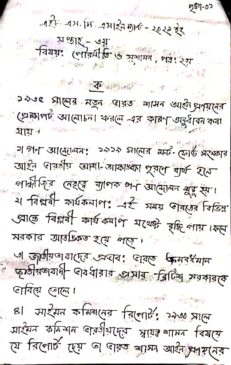 পৃষ্ঠা-০১
এইচ.এস.সি এসাইনমেন্ট - ২০২২ ইং
সপ্তাহ - ৩য়
বিষয়: পৌরনীতি ও সুশাসন, পত্র: ২য়
ক
১৯৩৫ সালের নতুন ভারত শাসন আইন প্রণয়নের
প্রেক্ষাপট আলোচনা করলে এর কারণ অনুধাবন করা
যায়।
১। গণ আন্দোলন: ১৯১৯ সালের মন্ট-ফোর্ড সংস্কার
আইন ভারতীয় আশা-আকাঙ্ক্ষা পূরণে ব্যর্থ হলে
গান্ধীজির নেতৃত্বে ব্যাপক গণ আন্দোলন শুরু হয়।
২। বিপ্লবী কার্যকলাপ: এই সময় ভারতের বিভিন্ন
প্রান্তে বিপ্লবী কার্যকলাপ যথেষ্ট বৃদ্ধি পায়। ফলে
সরকার আতঙ্কিত হয়ে পড়ে।
৩। জাতীয়তাবাদের প্রভাব: ভারতে ক্রমবর্ধমান
জাতীয়তাবাদী ভাবধারার প্রসার ব্রিটিশ সরকারকে
ভাবিয়ে তোলে।
৪। সাইমন কমিশনের রিপোর্ট: ১৯৩০ সালে
সাইমন কমিশন ভারতীয়দের স্বায়ত্ত শাসন বিষয়ে
যে রিপোর্ট দেয় তা ভারত শাসন আইন প্রণয়নের